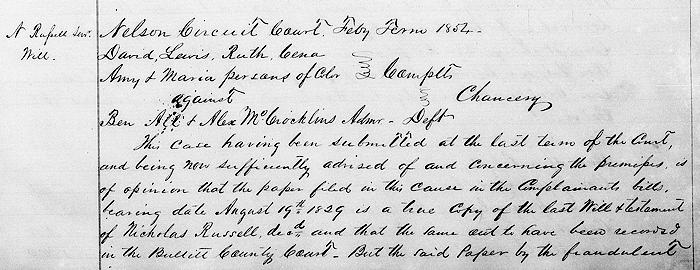 N Russell Senr. Nelson Circuit Court, Feby Term 1854.
Will. David, Lewis, Ruth, Cena
Amy & Maria persons of Clor Complts
against Chancery
Ben & Alex McCrocklins Admr - Deft
This case having been submitted at the last term of the Court,
and being now sufficiently advised of and concerning the premises, is
of opinion that the paper filed in this cause in the Complainants bills,
bearing date August 19th 1829 is a true Copy of the last Will & testament
of Nicholas Russell, decd and that the same out to have been recored
in the Bullett County Court. But the said Paper by the fraudulent